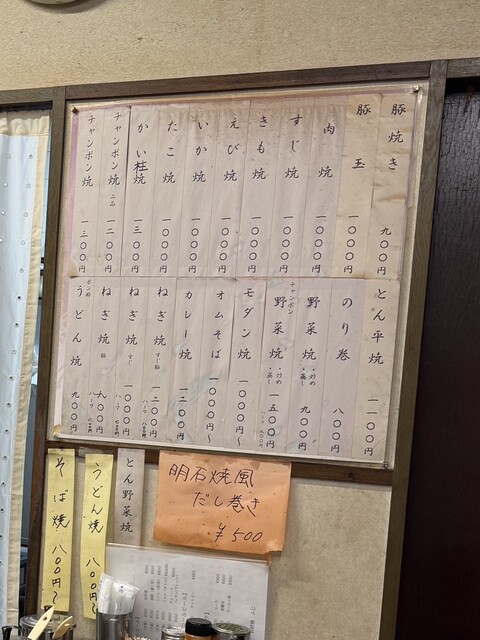 豚焼き 九〇〇円
豚玉 一〇〇〇円
肉焼 一〇〇〇円
すじ焼 一〇〇〇円
きも焼 一〇〇〇円
えび焼 一〇〇〇円
いか焼 一〇〇〇円
たこ焼 一〇〇〇円
かい柱焼 一三〇〇円
チャンポン焼 二品 一二〇〇円
チャンポン焼 一三〇〇円
とん平焼 一一〇〇円
のり巻 八〇〇円
野菜焼 ・炒め ・蒸し 九〇〇円
チャンポン野菜焼 ・炒め ・蒸し 一五〇〇円
モダン焼 一〇〇〇円〜
オムそば 一〇〇〇円〜
カレー焼 一二〇〇円
ねぎ焼 すじ豚 一二〇〇円
ねぎ焼 すじ 一〇〇〇円
ねぎ焼 豚 九〇〇円
うどん焼 九〇〇円
とん野菜焼
うどん焼 八〇〇円〜
そば焼 八〇〇円〜
明石焼風
だし巻き
¥500